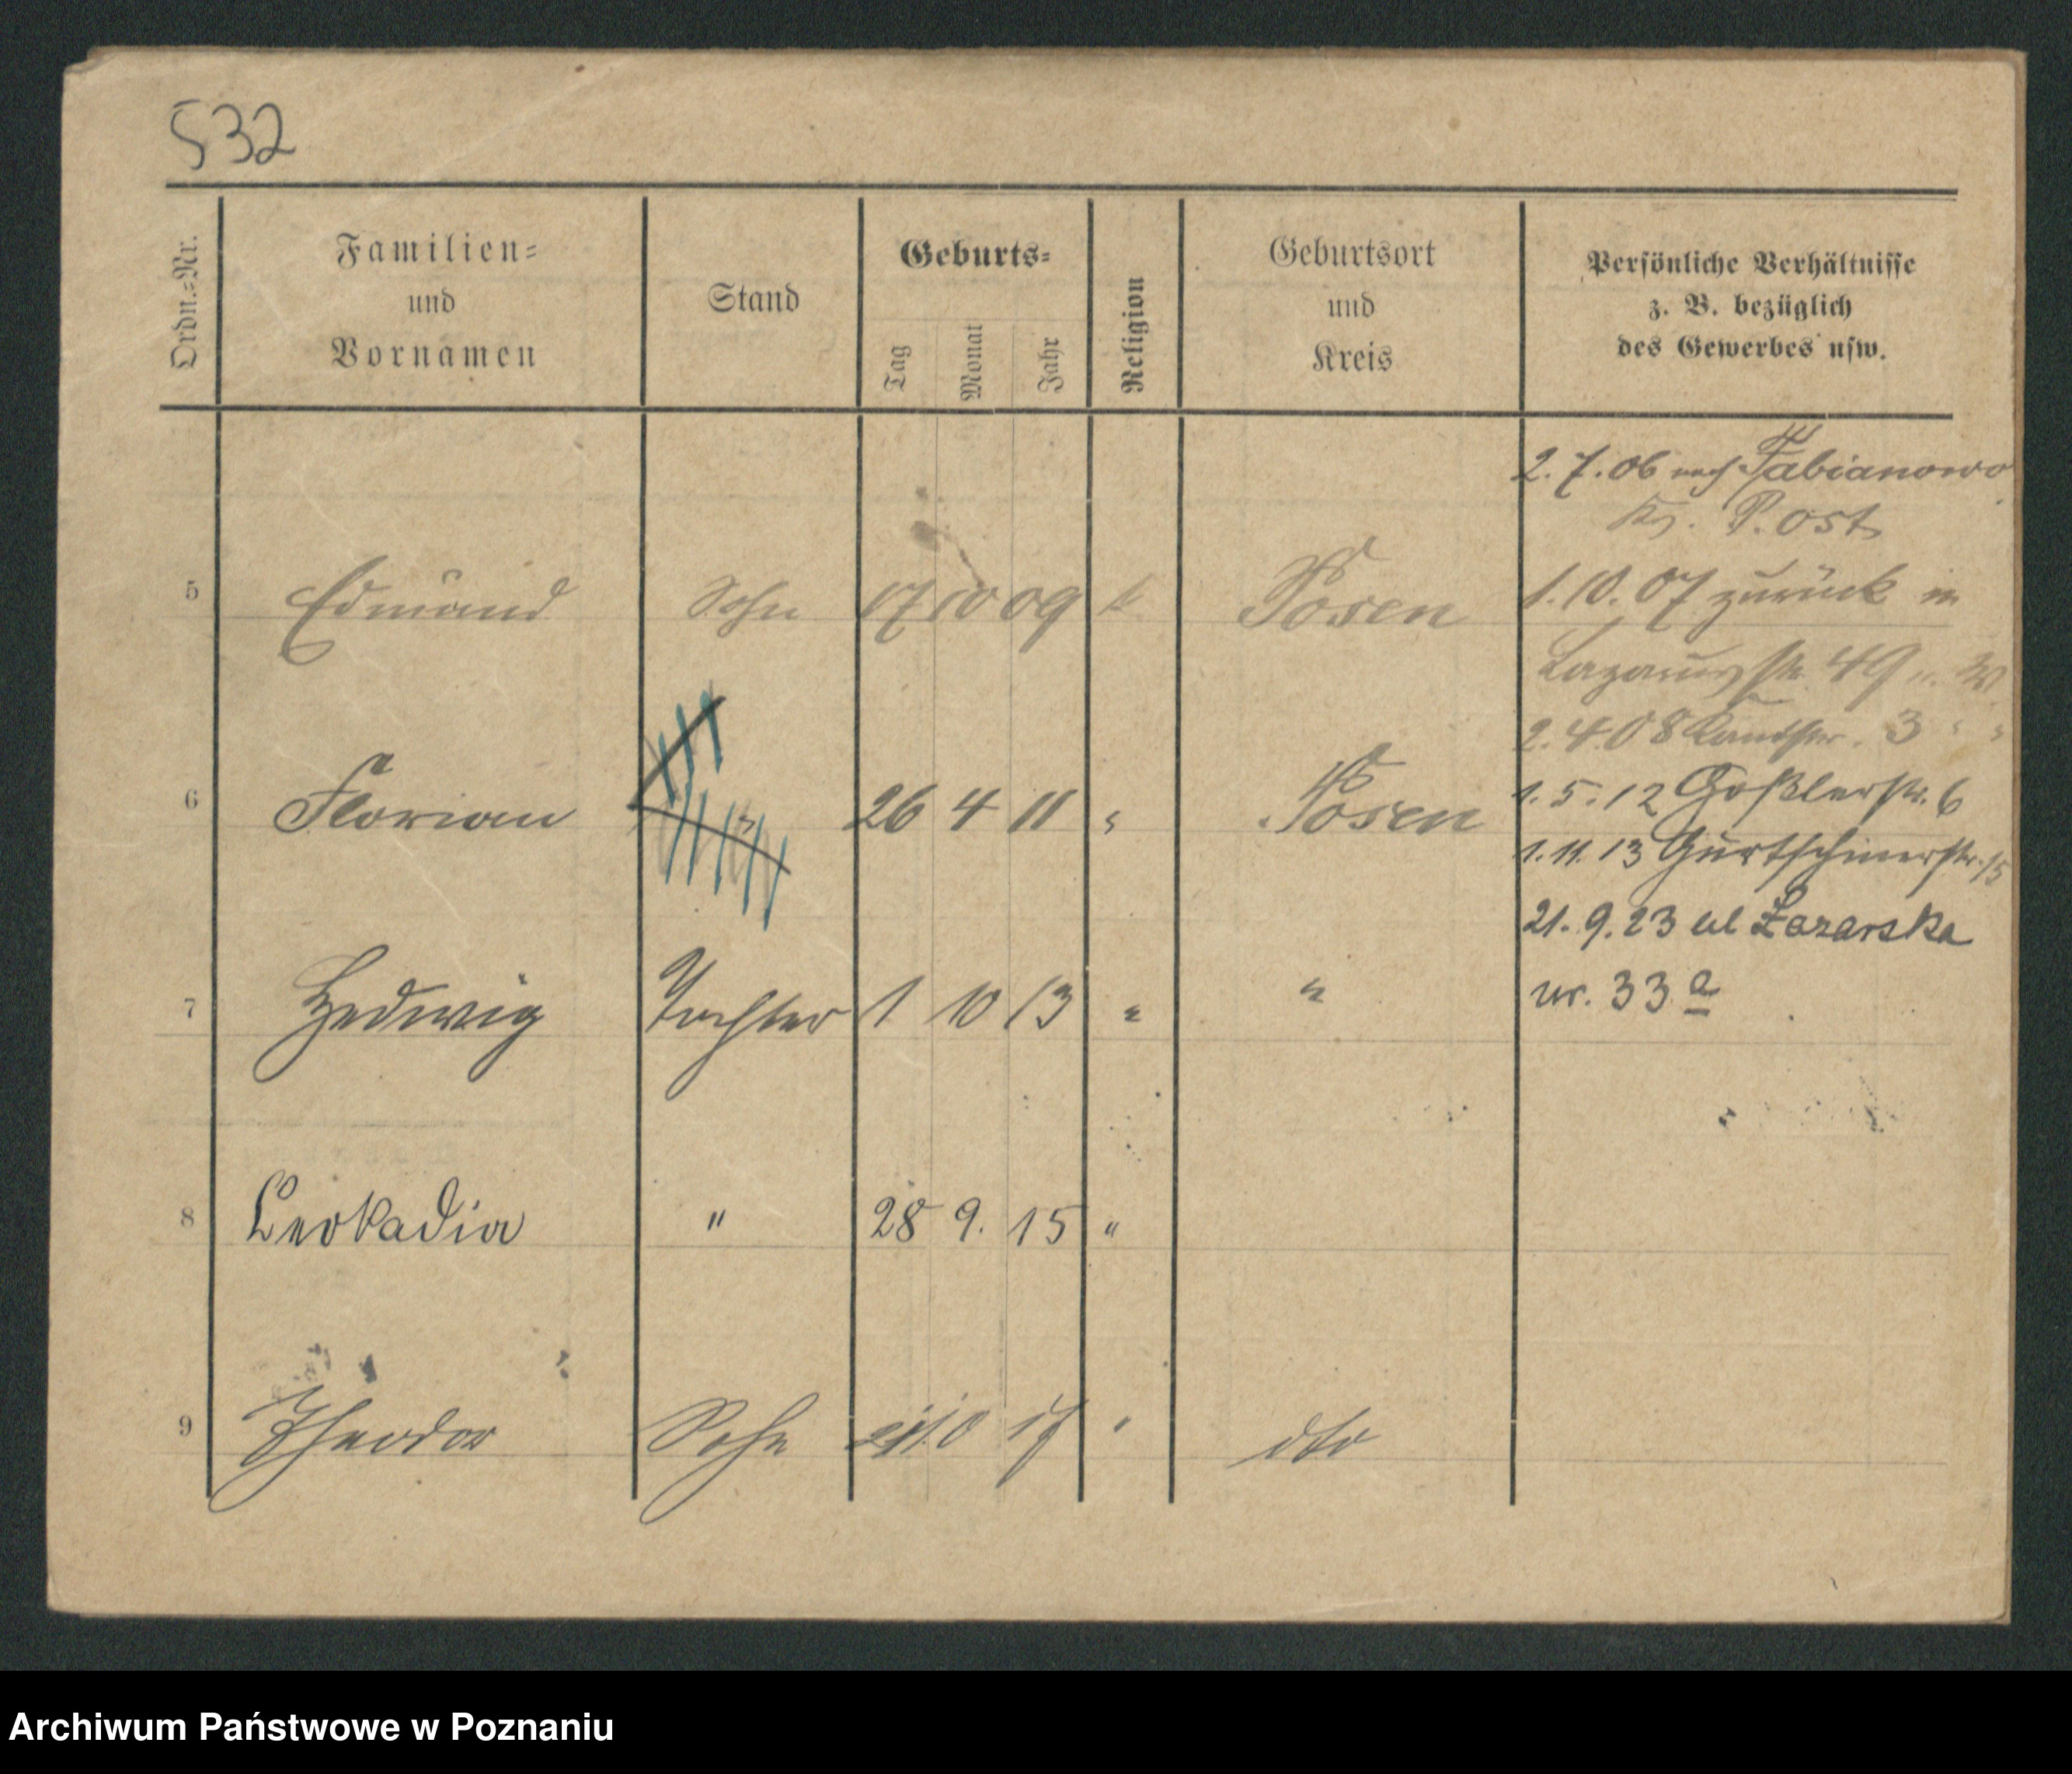 532
Ordn.-Nr.
Familien-
und
Vornamen
Stand
Geburts-
Tag
Monat
Jahr
Religion
Geburtsort
und
Kreis
Persönliche Verhältnisse
z. B. bezüglich
des Gewerbes usw.
2.7.06 nach Fabianowo
Kr. P. Ost
5 Edmund Sohn 17 10 09 k Posen
1.10.07 zurück in
Lazarusstr. 49
2.4.08 3 " "
6 Florian " 26 4 11 " Posen
1.5.12 Goßlerstr. 6
1.11.13 Gurtschinerstr. 15
21.9.23 ul Łazarska
7 Hedwig Tochter 1 10 13 " "
nr. 33 a
8 Leokadia " 28 9. 15 "
9 Theodor Sohn 10 17 " dto
Archiwum Państwowe w Poznaniu